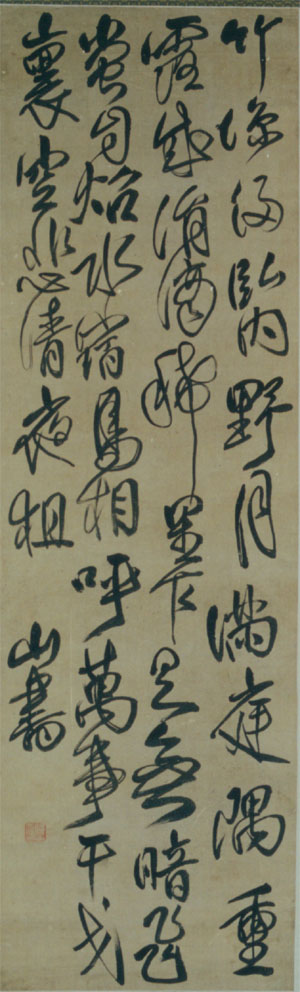 竹涼侵臥内野月滿庭隅重
露成涓滴稀星乍有無暗飛
螢自炤水宿鳥相呼萬事干戈
裏空悲清夜徂
山書